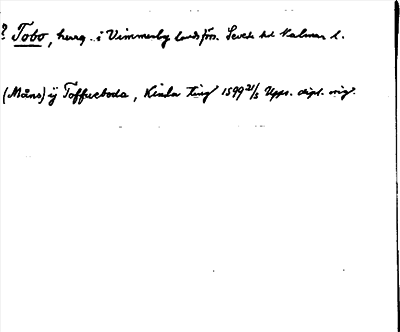 ? Tobo, herrg. i Vimmerby landsförs. Sevede hd Kalmar l.
(Måns) ij Toffueboda, Kinda ting 1599 21/5 Upps. dipl. orig.